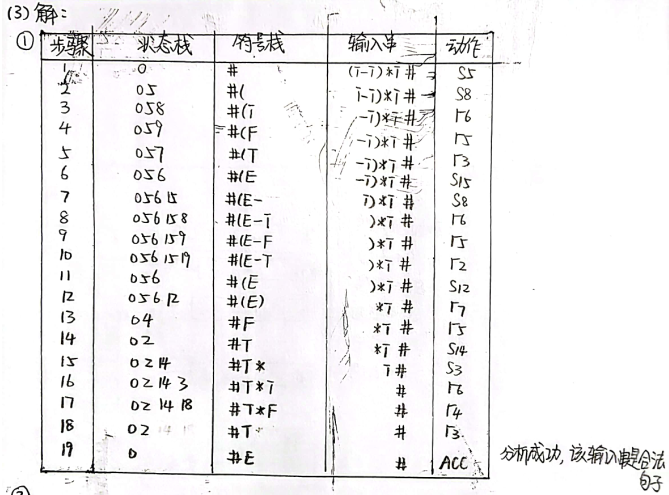 (3) 解:
① 步骤 状态栈 符号栈 输入串 动作
1 0 # (i-i)*i # S5
2 05 #( i-i)*i # S8
3 058 #(i -i)*i # r6
4 059 #(F -i)*i # r5
5 057 #(T -i)*i # r3
6 056 #(E -i)*i # S15
7 056 15 #(E- i)*i # S8
8 056 15 8 #(E-i )*i # r6
9 056 15 9 #(E-F )*i # r5
10 056 15 19 #(E-T )*i # r2
11 056 #(E )*i # S12
12 056 12 #(E) *i # r7
13 04 #F *i # r5
14 02 #T *i # S14
15 02 14 #T* i # S3
16 02 14 3 #T*i # r6
17 02 14 18 #T*F # r4
18 02 #T # r3
19 0 #E # ACC
分析成功, 该输入串是合法
句子